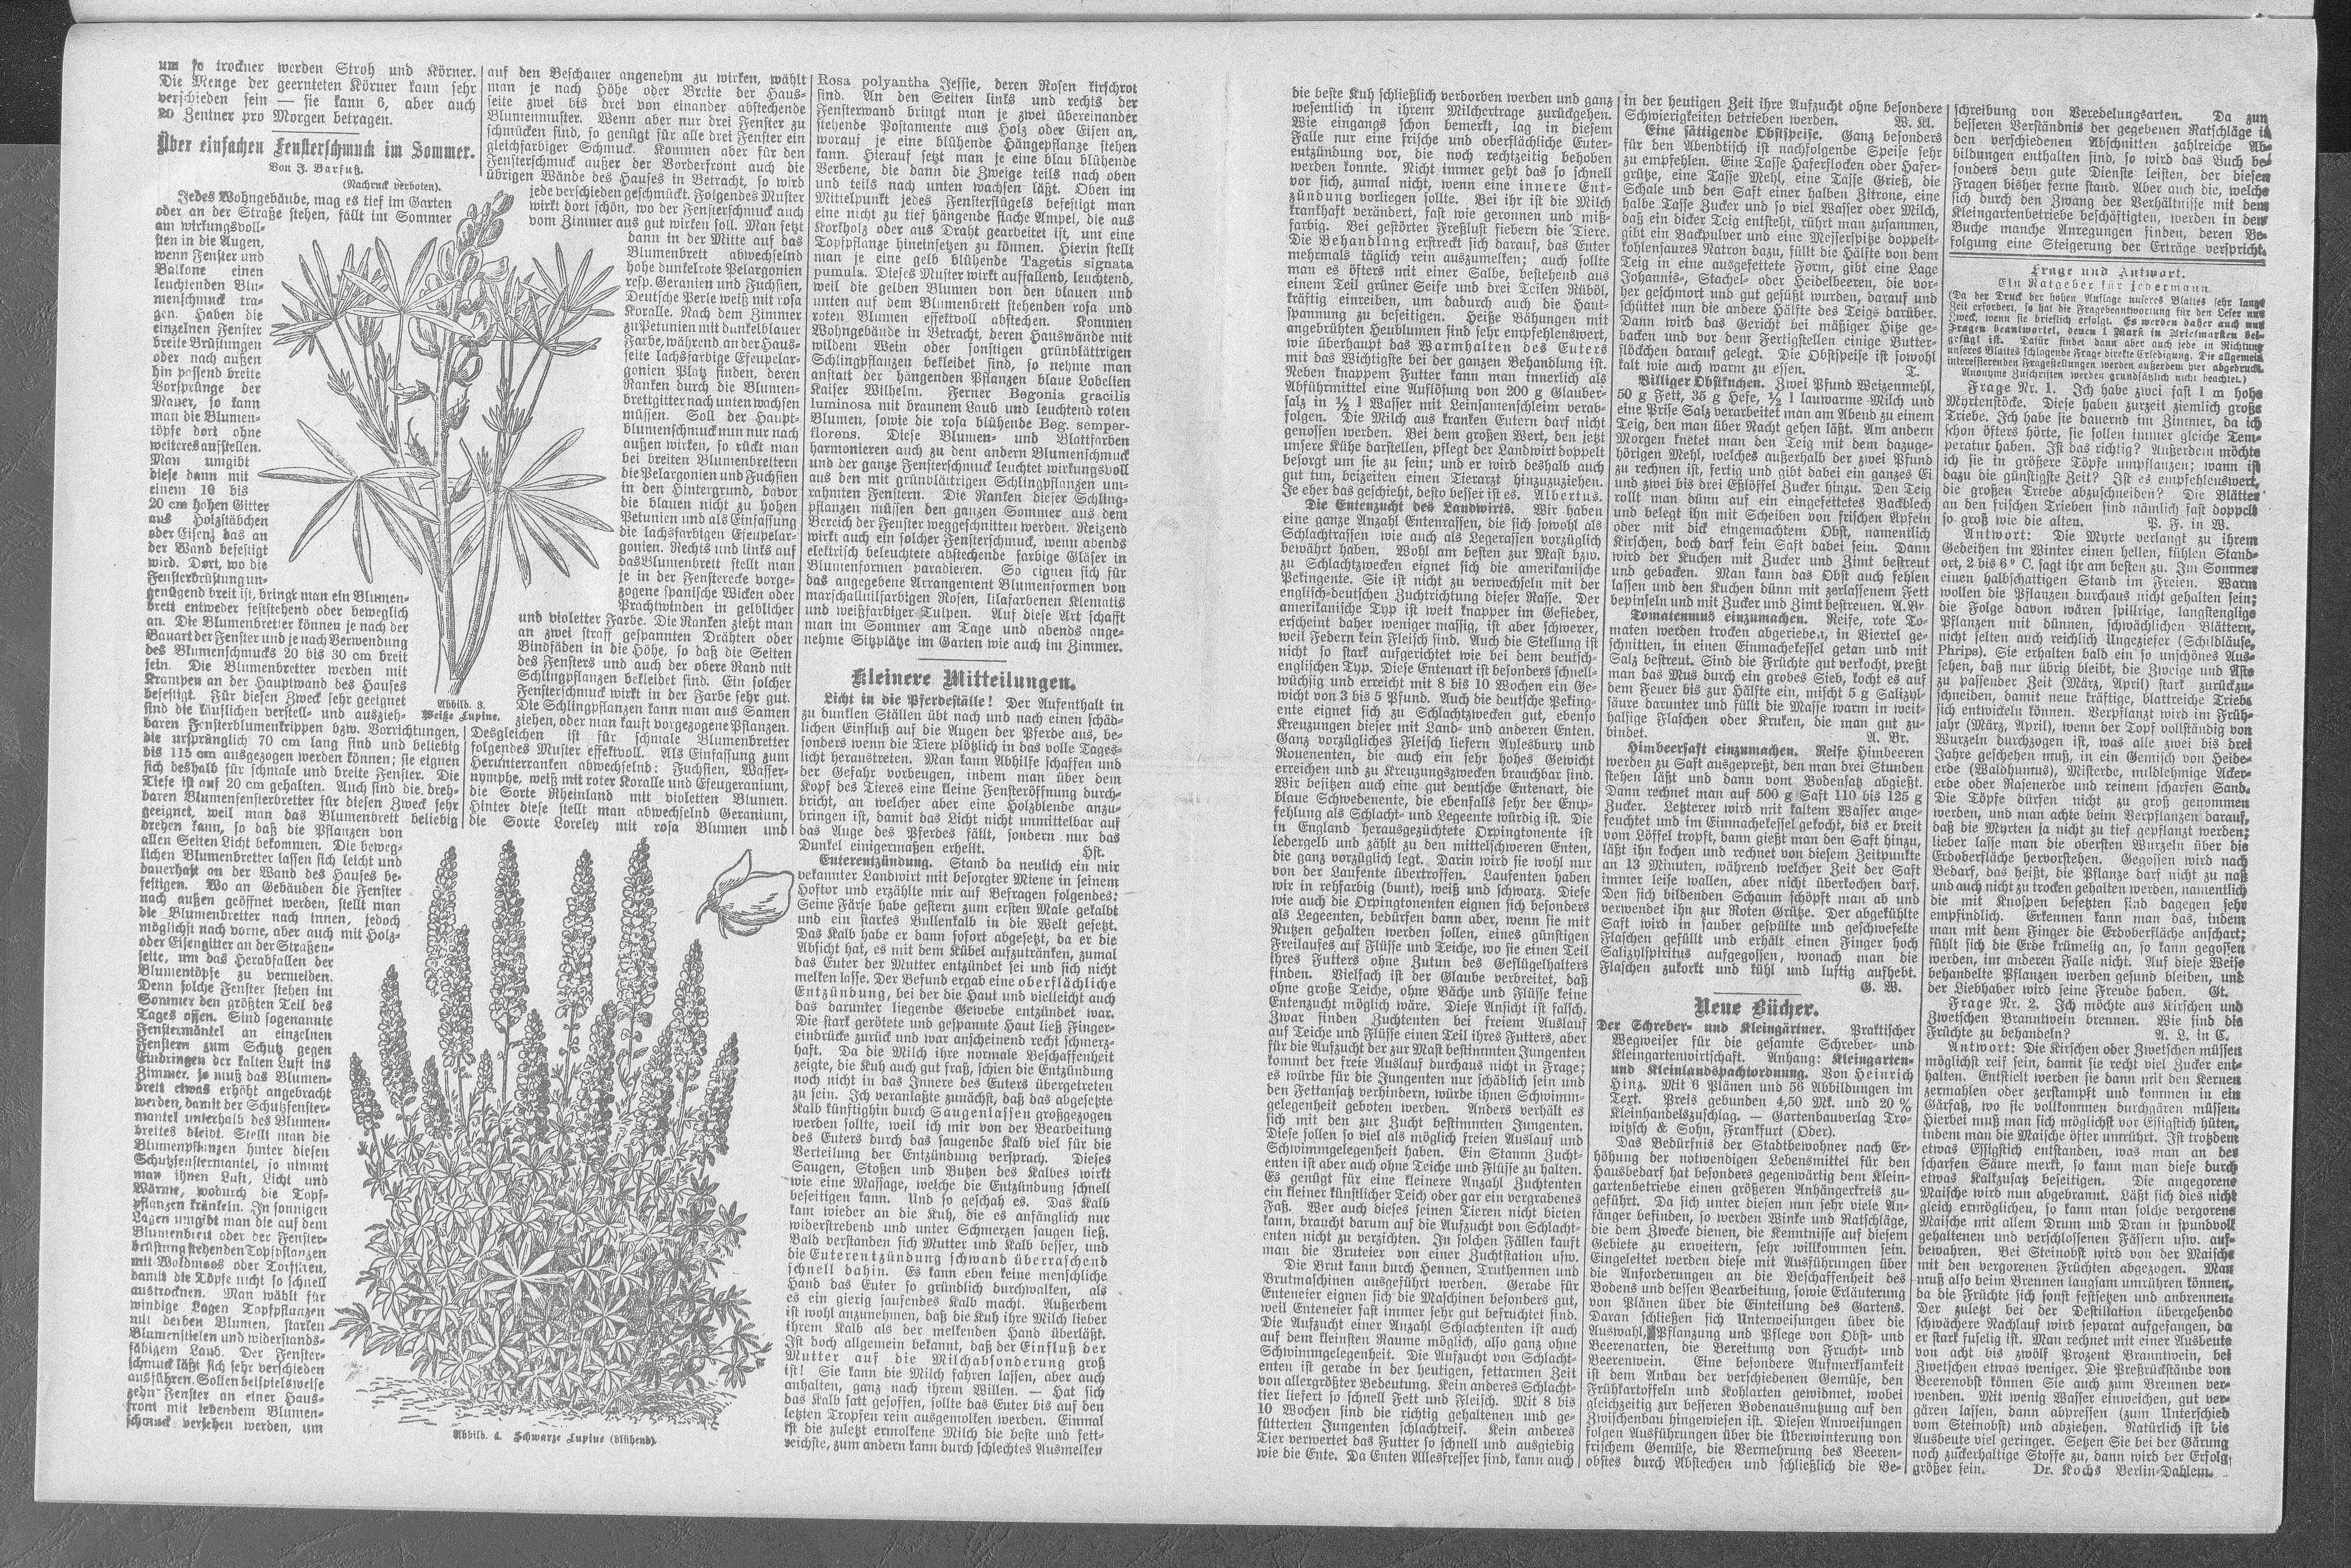 um so trockner werden Stroh und Körner.
Die Menge der geernteten Körner kann sehr
verschieden sein — sie kann 6, aber auch
20 Zentner pro Morgen betragen.
Über einfachen Fensterschmuck im Sommer.
Von J. Barfuß.
(Nachdruck verboten).
Jedes Wohngebäude, mag es tief im Garten
oder an der Straße stehen, fällt im Sommer
am wirkungsvoll-
sten in die Augen,
wenn Fenster und
Balkone einen
leuchtenden Blu-
menschmuck tra-
gen. Haben die
einzelnen Fenster
breite Brüstungen
oder nach außen
hin passend breite
Vorsprünge der
Mauer, so kann
man die Blumen-
töpfe dort ohne
weiteres aufstellen.
Man umgibt
diese dann mit
einem 10 bis
20 cm hohen Gitter
aus Holzstäbchen
oder Eisen, das an
der Wand befestigt
wird. Dort, wo die
Fensterbrüstung un-
genügend breit ist, bringt man ein Blumen-
brett entweder feststehend oder beweglich
an. Die Blumenbretter können je nach der
Bauart der Fenster und je nach Verwendung
des Blumenschmucks 20 bis 30 cm breit
sein. Die Blumenbretter werden mit
Krampen an der Hauptwand des Hauses
befestigt. Für diesen Zweck sehr geeignet
sind die käuflichen verstell- und auszieh-
baren Fensterblumenkrippen bzw. Vorrichtungen,
die ursprünglich 70 cm lang sind und beliebig
bis 115 cm ausgezogen werden können; sie eignen
sich deshalb für schmale und breite Fenster. Die
Tiefe ist auf 20 cm gehalten. Auch sind die dreh-
baren Blumenfensterbretter für diesen Zweck sehr
geeignet, weil man das Blumenbrett beliebig
drehen kann, so daß die Pflanzen von
allen Seiten Licht bekommen. Die beweg-
lichen Blumenbretter lassen sich leicht und
dauerhaft an der Wand des Hauses be-
festigen. Wo an Gebäuden die Fenster
nach außen geöffnet werden, stellt man
die Blumenbretter nach innen, jedoch
möglichst nach vorne, aber auch mit Holz-
oder Eisengitter an der Straßen-
seite, um das Herabfallen der
Blumentöpfe zu vermeiden.
Denn solche Fenster stehen im
Sommer den größten Teil des
Tages offen. Sind sogenannte
Fenstermäntel an einzelnen
Fenstern zum Schutz gegen
Eindringen der kalten Luft ins
Zimmer, so muß das Blumen-
brett etwas erhöht angebracht
werden, damit der Schutzfenster-
mantel unterhalb des Blumen-
brettes bleibt. Stellt man die
Blumenpflanzen hinter diesen
Schutzfenstermantel, so nimmt
man ihnen Luft, Licht und
Wärme, wodurch die Topf-
pflanzen kränkeln. In sonnigen
Lagen umgibt man die auf dem
Blumenbrett oder der Fenster-
brüstung stehenden Topfpflanzen
mit Waldmoos oder Torfstreu,
damit die Töpfe nicht so schnell
austrocknen. Man wählt für
windige Lagen Topfpflanzen
mit derben Blumen, starken
Blumenstielen und widerstands-
fähigem Laub. Der Fenster-
schmuck läßt sich sehr verschieden
ausführen. Sollen beispielsweise
zehn Fenster an einer Haus-
front mit lebendem Blumen-
schmuck versehen werden, um
auf den Beschauer angenehm zu wirken, wählt
man je nach Höhe oder Breite der Haus-
seite zwei bis drei von einander abstechende
Blumenmuster. Wenn aber nur drei Fenster zu
schmücken sind, so genügt für alle drei Fenster ein
gleichfarbiger Schmuck. Kommen aber für den
Fensterschmuck außer der Vorderfront auch die
übrigen Wände des Hauses in Betracht, so wird
jede verschieden geschmückt. Folgendes Muster
wirkt dort schön, wo der Fensterschmuck auch
vom Zimmer aus gut wirken soll. Man setzt
dann in der Mitte auf das
Blumenbrett abwechselnd
hohe dunkelrote Pelargonien
resp. Geranien und Fuchsien,
Deutsche Perle weiß mit rosa
Koralle. Nach dem Zimmer
zu Petunien mit dunkelblauer
Farbe, während an der Haus-
seite lachsfarbige Efeupelar-
gonien Platz finden, deren
Ranken durch die Blumen-
brettgitter nach unten wachsen
müssen. Soll der Haupt-
blumenschmuck nun nur nach
außen wirken, so rückt man
bei breiten Blumenbrettern
die Pelargonien und Fuchsien
in den Hintergrund, davor
die blauen nicht zu hohen
Petunien und als Einfassung
die lachsfarbigen Efeupelar-
gonien. Rechts und links auf
das Blumenbrett stellt man
je in der Fensterecke vorge-
zogene spanische Wicken oder
Prachtwinden in gelblicher
und violetter Farbe. Die Ranken zieht man
an zwei straff gespannten Drähten oder
Bindfäden in die Höhe, so daß die Seiten
des Fensters und auch der obere Rand mit
Schlingpflanzen bekleidet sind. Ein solcher
Fensterschmuck wirkt in der Farbe sehr gut.
Die Schlingpflanzen kann man aus Samen
ziehen, oder man kauft vorgezogene Pflanzen.
Abbild. 3.
Weiße Lupine.
Desgleichen ist für schmale Blumenbretter
folgendes Muster effektvoll. Als Einfassung zum
Herunterranken abwechselnd: Fuchsien, Wasser-
nymphe, weiß mit roter Koralle und Efeugeranium,
die Sorte Rheinland mit violetten Blumen.
Hinter diese stellt man abwechselnd Geranium,
die Sorte Loreley mit rosa Blumen und
Abbild. 4. Schwarze Lupine (blühend).
Rosa polyantha Jessie, deren Rosen kirschrot
sind. An den Seiten links und rechts der
Fensterwand bringt man je zwei übereinander
stehende Postamente aus Holz oder Eisen an,
worauf je eine blühende Hängepflanze stehen
kann. Hierauf setzt man je eine blau blühende
Verbene, die dann die Zweige teils nach oben
und teils nach unten wachsen läßt. Oben im
Mittelpunkt jedes Fensterflügels befestigt man
eine nicht zu tief hängende flache Ampel, die aus
Korkholz oder aus Draht gearbeitet ist, um eine
Topfpflanze hineinsetzen zu können. Hierin stellt
man je eine gelb blühende Tagetis signata
pumula. Dieses Muster wirkt auffallend, leuchtend,
weil die gelben Blumen von den blauen und
unten auf dem Blumenbrett stehenden rosa und
roten Blumen effektvoll abstechen. Kommen
Wohngebäude in Betracht, deren Hauswände mit
wildem Wein oder sonstigen grünblättrigen
Schlingpflanzen bekleidet sind, so nehme man
anstatt der hängenden Pflanzen blaue Lobelien
Kaiser Wilhelm. Ferner Begonia gracilis
luminosa mit braunem Laub und leuchtend roten
Blumen, sowie die rosa blühende Beg. semper-
florens. Diese Blumen- und Blattfarben
harmonieren auch zu dem andern Blumenschmuck
und der ganze Fensterschmuck leuchtet wirkungsvoll
aus den mit grünblättrigen Schlingpflanzen um-
rahmten Fenstern. Die Ranken dieser Schling-
pflanzen müssen den ganzen Sommer aus dem
Bereich der Fenster weggeschnitten werden. Reizend
wirkt auch ein solcher Fensterschmuck, wenn abends
elektrisch beleuchtete abstechende farbige Gläser in
Blumenformen paradieren. So eignen sich für
das angegebene Arrangement Blumenformen von
marschallnilfarbigen Rosen, lilafarbenen Klematis
und weißfarbiger Tulpen. Auf diese Art schafft
man im Sommer am Tage und abends ange-
nehme Sitzplätze im Garten wie auch im Zimmer.
Kleinere Mitteilungen.
Licht in die Pferdeställe! Der Aufenthalt in
zu dunklen Ställen übt nach und nach einen schäd-
lichen Einfluß auf die Augen der Pferde aus, be-
sonders wenn die Tiere plötzlich in das volle Tages-
licht heraustreten. Man kann Abhilfe schaffen und
der Gefahr vorbeugen, indem man über dem
Kopf des Tieres eine kleine Fensteröffnung durch-
bricht, an welcher aber eine Holzblende anzu-
bringen ist, damit das Licht nicht unmittelbar auf
das Auge des Pferdes fällt, sondern nur das
Dunkel einigermaßen erhellt. Hst.
Euterentzündung. Stand da neulich ein mir
bekannter Landwirt mit besorgter Miene in seinem
Hoftor und erzählte mir auf Befragen folgendes:
Seine Färse habe gestern zum ersten Male gekalbt
und ein starkes Bullenkalb in die Welt gesetzt.
Das Kalb habe er dann sofort abgesetzt, da er die
Absicht hat, es mit dem Kübel aufzutränken, zumal
das Euter der Mutter entzündet sei und sich nicht
melken lasse. Der Befund ergab eine oberflächliche
Entzündung, bei der die Haut und vielleicht auch
das darunter liegende Gewebe entzündet war.
Die stark gerötete und gespannte Haut ließ Finger-
eindrücke zurück und war anscheinend recht schmerz-
haft. Da die Milch ihre normale Beschaffenheit
zeigte, die Kuh auch gut fraß, schien die Entzündung
noch nicht in das Innere des Euters übergetreten
zu sein. Ich veranlaßte zunächst, daß das abgesetzte
Kalb künftighin durch Saugenlassen großgezogen
werden sollte, weil ich mir von der Bearbeitung
des Euters durch das saugende Kalb viel für die
Verteilung der Entzündung versprach. Dieses
Saugen, Stoßen und Butzen des Kalbes wirkt
wie eine Massage, welche die Entzündung schnell
beseitigen kann. Und so geschah es. Das Kalb
kam wieder an die Kuh, die es anfänglich nur
widerstrebend und unter Schmerzen saugen ließ.
Bald verstanden sich Mutter und Kalb besser, und
die Euterentzündung schwand überraschend
schnell dahin. Es kann eben keine menschliche
Hand das Euter so gründlich durchwalken, als
es ein gierig saufendes Kalb macht. Außerdem
ist wohl anzunehmen, daß die Kuh ihre Milch lieber
ihrem Kalb als der melkenden Hand überläßt.
Ist doch allgemein bekannt, daß der Einfluß der
Mutter auf die Milchabsonderung groß
ist! Sie kann die Milch fahren lassen, aber auch
anhalten, ganz nach ihrem Willen. — Hat sich
das Kalb satt gesoffen, sollte das Euter bis auf den
letzten Tropfen rein ausgemolken werden. Einmal
ist die zuletzt ermolkene Milch die beste und fett-
reichste, zum andern kann durch schlechtes Ausmelken
die beste Kuh schließlich verdorben werden und ganz
wesentlich in ihrem Milchertrage zurückgehen.
Wie eingangs schon bemerkt, lag in diesem
Falle nur eine frische und oberflächliche Euter-
entzündung vor, die noch rechtzeitig behoben
werden konnte. Nicht immer geht das so schnell
vor sich, zumal nicht, wenn eine innere Ent-
zündung vorliegen sollte. Bei ihr ist die Milch
krankhaft verändert, fast wie geronnen und miß-
farbig. Bei gestörter Freßlust fiebern die Tiere.
Die Behandlung erstreckt sich darauf, das Euter
mehrmals täglich rein auszumelken; auch sollte
man es öfters mit einer Salbe, bestehend aus
einem Teil grüner Seife und drei Teilen Rüböl,
kräftig einreiben, um dadurch auch die Haut-
spannung zu beseitigen. Heiße Bähungen mit
angebrühten Heublumen sind sehr empfehlenswert,
wie überhaupt das Warmhalten des Euters
mit das Wichtigste bei der ganzen Behandlung ist.
Neben knappem Futter kann man innerlich als
Abführmittel eine Auflösung von 200 g Glauber-
salz in ½ l Wasser mit Leinsamenschleim verab-
folgen. Die Milch aus kranken Eutern darf nicht
genossen werden. Bei dem großen Wert, den jetzt
unsere Kühe darstellen, pflegt der Landwirt doppelt
besorgt um sie zu sein; und er wird deshalb auch
gut tun, beizeiten einen Tierarzt hinzuzuziehen.
Je eher das geschieht, desto besser ist es. Albertus.
Die Entenzucht des Landwirts. Wir haben
eine ganze Anzahl Entenrassen, die sich sowohl als
Schlachtrassen wie auch als Legerassen vorzüglich
bewährt haben. Wohl am besten zur Mast bzw.
zu Schlachtzwecken eignet sich die amerikanische
Pekingente. Sie ist nicht zu verwechseln mit der
englisch-deutschen Zuchtrichtung dieser Rasse. Der
amerikanische Typ ist weit knapper im Gefieder,
erscheint daher weniger massig, ist aber schwerer,
weil Federn kein Fleisch sind. Auch die Stellung ist
nicht so stark aufgerichtet wie bei dem deutsch-
englischen Typ. Diese Entenart ist besonders schnell-
wüchsig und erreicht mit 8 bis 10 Wochen ein Ge-
wicht von 3 bis 5 Pfund. Auch die deutsche Peking-
ente eignet sich zu Schlachtzwecken gut, ebenso
Kreuzungen dieser mit Land- und anderen Enten.
Ganz vorzügliches Fleisch liefern Aylesbury und
Rouenenten, die auch ein sehr hohes Gewicht
erreichen und zu Kreuzungszwecken brauchbar sind.
Wir besitzen auch eine gut deutsche Entenart, die
blaue Schwedenente, die ebenfalls sehr der Emp-
fehlung als Schlacht- und Legeente würdig ist. Die
in England herausgezüchtete Orpingtonente ist
ledergelb und zählt zu den mittelschweren Enten,
die ganz vorzüglich legt. Darin wird sie wohl nur
von der Laufente übertroffen. Laufenten haben
wir in rehfarbig (bunt), weiß und schwarz. Diese
wie auch die Orpingtonenten eignen sich besonders
als Legeenten, bedürfen dann aber, wenn sie mit
Nutzen gehalten werden sollen, eines günstigen
Freilaufes auf Flüsse und Teiche, wo sie einen Teil
ihres Futters ohne Zutun des Geflügelhalters
finden. Vielfach ist der Glaube verbreitet, daß
ohne große Teiche, ohne Bäche und Flüsse keine
Entenzucht möglich wäre. Diese Ansicht ist falsch.
Zwar finden Zuchtenten bei freiem Auslauf
auf Teiche und Flüsse einen Teil ihres Futters, aber
für die Aufzucht der zur Mast bestimmten Jungenten
kommt der freie Auslauf durchaus nicht in Frage;
es würde für die Jungenten nur schädlich sein und
den Fettansatz verhindern, würde ihnen Schwimm-
gelegenheit geboten werden. Anders verhält es
sich mit den zur Zucht bestimmten Jungenten.
Diese sollen so viel als möglich freien Auslauf und
Schwimmgelegenheit haben. Ein Stamm Zucht-
enten ist aber auch ohne Teiche und Flüsse zu halten.
Es genügt für eine kleinere Anzahl Zuchtenten
ein kleiner künstlicher Teich oder gar ein vergrabenes
Faß. Wer auch dieses seinen Tieren nicht bieten
kann, braucht darum auf die Aufzucht von Schlacht-
enten nicht zu verzichten. In solchen Fällen kauft
man die Bruteier von einer Zuchtstation usw.
Die Brut kann durch Hennen, Truthennen und
Brutmaschinen ausgeführt werden. Gerade für
Enteneier eignen sich die Maschinen besonders gut,
weil Enteneier fast immer sehr gut befruchtet sind.
Die Aufzucht einer Anzahl Schlachtenten ist auch
auf dem kleinsten Raume möglich, also ganz ohne
Schwimmgelegenheit. Die Aufzucht von Schlacht-
enten ist gerade in der heutigen, fettarmen Zeit
von allergrößter Bedeutung. Kein anderes Schlacht-
tier liefert so schnell Fett und Fleisch. Mit 8 bis
10 Wochen sind die richtig gehaltenen und ge-
fütterten Jungenten schlachtreif. Kein anderes
Tier verwertet das Futter so schnell und ausgiebig
wie die Ente. Da Enten Allesfresser sind, kann auch
in der heutigen Zeit ihre Aufzucht ohne besondere
Schwierigkeiten betrieben werden. W. Kl.
Eine sättigende Obstspeise. Ganz besonders
für den Abendtisch ist nachfolgende Speise sehr
zu empfehlen. Eine Tasse Haferflocken oder Hafer-
grütze, eine Tasse Mehl, eine Tasse Grieß, die
Schale und den Saft einer halben Zitrone, eine
halbe Tasse Zucker und so viel Wasser oder Milch,
daß ein dicker Teig entsteht, rührt man zusammen,
gibt ein Backpulver und eine Messerspitze doppelt-
kohlensaures Natron dazu, füllt die Hälfte von dem
Teig in eine ausgefettete Form, gibt eine Lage
Johannis-, Stachel- oder Heidelbeeren, die vor-
her geschmort und gut gesüßt wurden, darauf und
schüttet nun die andere Hälfte des Teigs darüber.
Dann wird das Gericht bei mäßiger Hitze ge-
backen und vor dem Fertigstellen einige Butter-
flöckchen darauf gelegt. Die Obstspeise ist sowohl
kalt wie auch warm zu essen. T.
Billiger Obstkuchen. Zwei Pfund Weizenmehl,
50 g Fett, 35 g Hefe, ½ l lauwarme Milch und
eine Prise Salz verarbeitet man am Abend zu einem
Teig, den man über Nacht gehen läßt. Am andern
Morgen knetet man den Teig mit dem dazuge-
hörigen Mehl, welches außerhalb der zwei Pfund
zu rechnen ist, fertig und gibt dabei ein ganzes Ei
und zwei bis drei Eßlöffel Zucker hinzu. Den Teig
rollt man dünn auf ein eingefettetes Backblech
und belegt ihn mit Scheiben von frischen Äpfeln
oder mit dick eingemachtem Obst, namentlich
Kirschen, doch darf kein Saft dabei sein. Dann
wird der Kuchen mit Zucker und Zimt bestreut
und gebacken. Man kann das Obst auch fehlen
lassen und den Kuchen dünn mit zerlassenem Fett
bepinseln und mit Zucker und Zimt bestreuen. A. Br.
Tomatenmus einzumachen. Reife, rote To-
maten werden trocken abgerieben, in Viertel ge-
schnitten, in einen Einmachekessel getan und mit
Salz bestreut. Sind die Früchte gut verkocht, preßt
man das Mus durch ein grobes Sieb, kocht es auf
dem Feuer bis zur Hälfte ein, mischt 5 g Salizyl-
säure darunter und füllt die Masse warm in weit-
halsige Flaschen oder Kruken, die man gut zu-
bindet. A. Br.
Himbeersaft einzumachen. Reife Himbeeren
werden zu Saft ausgepreßt, den man drei Stunden
stehen läßt und dann vom Bodensatz abgießt.
Dann rechnet man auf 500 g Saft 110 bis 125 g
Zucker. Letzterer wird mit kaltem Wasser ange-
feuchtet und im Einmachekessel gekocht, bis er breit
vom Löffel tropft, dann gießt man den Saft hinzu,
läßt ihn kochen und rechnet von diesem Zeitpunkte
an 13 Minuten, während welcher Zeit der Saft
immer leise wallen, aber nicht überkochen darf.
Den sich bildenden Schaum schöpft man ab und
verwendet ihn zur Roten Grütze. Der abgekühlte
Saft wird in sauber gespülte und geschwefelte
Flaschen gefüllt und erhält einen Finger hoch
Salizylspiritus aufgegossen, wonach man die
Flaschen zukorkt und kühl und luftig aufhebt.
G. W.
Neue Bücher.
Der Schreber- und Kleingärtner. Praktischer
Wegweiser für die gesamte Schreber- und
Kleingartenwirtschaft. Anhang: Kleingarten-
und Kleinlandspachtordnung. Von Heinrich
Hinz. Mit 6 Plänen und 56 Abbildungen im
Text. Preis gebunden 4,50 Mk. und 20 %
Kleinhandelszuschlag. — Gartenbauverlag Tro-
witzsch & Sohn, Frankfurt (Oder).
Das Bedürfnis der Stadtbewohner nach Er-
höhung der notwendigen Lebensmittel für den
Hausbedarf hat besonders gegenwärtig dem Klein-
gartenbetriebe einen größeren Anhängerkreis zu-
geführt. Da sich unter diesen nun sehr viele An-
fänger befinden, so werden Winke und Ratschläge,
die dem Zwecke dienen, die Kenntnisse auf diesem
Gebiete zu erweitern, sehr willkommen sein.
Eingeleitet werden diese mit Ausführungen über
die Anforderungen an die Beschaffenheit des
Bodens und dessen Bearbeitung, sowie Erläuterung
von Plänen über die Einteilung des Gartens.
Daran schließen sich Unterweisungen über die
Auswahl, Pflanzung und Pflege von Obst- und
Beerenarten, die Bereitung von Frucht- und
Beerenwein. Eine besondere Aufmerksamkeit
ist dem Anbau der verschiedenen Gemüse, den
Frühkartoffeln und Kohlarten gewidmet, wobei
gleichzeitig zur besseren Bodenausnutzung auf den
Zwischenbau hingewiesen ist. Diesen Anweisungen
folgen Ausführungen über die Überwinterung von
frischem Gemüse, die Vermehrung des Beeren-
obstes durch Abstechen und schließlich die Be-
schreibung von Veredelungsarten. Da zum
besseren Verständnis der gegebenen Ratschläge in
den verschiedenen Abschnitten zahlreiche Ab-
bildungen enthalten sind, so wird das Buch be-
sonders dem gute Dienste leisten, der diesen
Fragen bisher ferne stand. Aber auch die, welche
sich durch den Zwang der Verhältnisse mit dem
Kleingartenbetriebe beschäftigten, werden in dem
Buche manche Anregungen finden, deren Be-
folgung eine Steigerung der Erträge verspricht.
Frage und Antwort.
Ein Ratgeber für jedermann.
(Da der Druck der hohen Auflage unseres Blattes sehr lange
Zeit erfordert, so hat die Fragebeantwortung für den Leser nur
Zweck, wenn sie brieflich erfolgt. Es werden daher auch nur
Fragen beantwortet, denen 1 Mark in Briefmarken bei-
gefügt ist. Dafür findet dann aber auch jede in Richtung
unseres Blattes schlagende Frage direkte Erledigung. Die allgemein
interessierenden Fragestellungen werden außerdem hier abgedruckt.
Anonyme Zuschriften werden grundsätzlich nicht beachtet.)
Frage Nr. 1. Ich habe zwei fast 1 m hohe
Myrtenstöcke. Diese haben zurzeit ziemlich große
Triebe. Ich habe sie dauernd im Zimmer, da ich
schon öfters hörte, sie sollen immer gleiche Tem-
peratur haben. Ist das richtig? Außerdem möchte
ich sie in größere Töpfe umpflanzen; wann ist
dazu die günstigste Zeit? Ist es empfehlenswert,
die großen Triebe abzuschneiden? Die Blätter
an den frischen Trieben sind nämlich fast doppelt
so groß wie die alten. P. F. in W.
Antwort: Die Myrte verlangt zu ihrem
Gedeihen im Winter einen hellen, kühlen Stand-
ort, 2 bis 6° C. sagt ihr am besten zu. Im Sommer
einen halbschattigen Stand im Freien. Warm
wollen die Pflanzen durchaus nicht gehalten sein;
die Folge davon wären spillrige, langstenglige
Pflanzen mit dünnen, schwächlichen Blättern,
nicht selten auch reichlich Ungeziefer (Schildläuse,
Phrips). Sie erhalten bald ein so unschönes Aus-
sehen, daß nur übrig bleibt, die Zweige und Äste
zu passender Zeit (März, April) stark zurückzu-
schneiden, damit neue kräftige, blattreiche Triebe
sich entwickeln können. Verpflanzt wird im Früh-
jahr (März, April), wenn der Topf vollständig von
Wurzeln durchzogen ist, was alle zwei bis drei
Jahre geschehen muß, in ein Gemisch von Heide-
erde (Waldhumus), Misterde, mildlehmige Acker-
erde oder Rasenerde und reinem scharfen Sand.
Die Töpfe dürfen nicht zu groß genommen
werden, und man achte beim Verpflanzen darauf,
daß die Myrten ja nicht zu tief gepflanzt werden;
lieber lasse man die obersten Wurzeln über die
Erdoberfläche hervorstehen. Gegossen wird nach
Bedarf, das heißt, die Pflanze darf nicht zu naß
und auch nicht zu trocken gehalten werden, namentlich
die mit Knospen besetzten sind dagegen sehr
empfindlich. Erkennen kann man das, indem
man mit dem Finger die Erdoberfläche anscharrt;
fühlt sich die Erde krümelig an, so kann gegossen
werden, im anderen Falle nicht. Auf diese Weise
behandelte Pflanzen werden gesund bleiben, und
der Liebhaber wird seine Freude haben. Gt.
Frage Nr. 2. Ich möchte aus Kirschen und
Zwetschen Branntwein brennen. Wie sind die
Früchte zu behandeln? A. L. in C.
Antwort: Die Kirschen oder Zwetschen müssen
möglichst reif sein, damit sie recht viel Zucker ent-
halten. Entstielt werden sie dann mit den Kernen
zermahlen oder zerstampft und kommen in ein
Gärfaß, wo sie vollkommen durchgären müssen.
Hierbei muß man sich möglichst vor Essigstich hüten,
indem man die Maische öfter umrührt. Ist trotzdem
etwas Essigstich entstanden, was man an der
scharfen Säure merkt, so kann man diese durch
etwas Kalkzusatz beseitigen. Die angegorene
Maische wird nun abgebrannt. Läßt sich dies nicht
gleich ermöglichen, so kann man solche vergorene
Maische mit allem Drum und Dran in spundvoll
gehaltenen und verschlossenen Fässern usw. auf-
bewahren. Bei Steinobst wird von der Maische
mit den vergorenen Früchten abgezogen. Man
muß also beim Brennen langsam umrühren können,
da die Früchte sich sonst festsetzen und anbrennen.
Der zuletzt bei der Destillation übergehende
schwächere Nachlauf wird separat aufgefangen, da
er stark fuselig ist. Man rechnet mit einer Ausbeute
von acht bis zwölf Prozent Branntwein, bei
Zwetschen etwas weniger. Die Preßrückstände von
Beerenobst können Sie auch zum Brennen ver-
wenden. Mit wenig Wasser einweichen, gut ver-
gären lassen, dann abpressen (zum Unterschied
vom Steinobst) und abziehen. Natürlich ist die
Ausbeute viel geringer. Setzen Sie bei der Gärung
noch zuckerhaltige Stoffe zu, dann wird der Erfolg
größer sein. Dr. Kochs Berlin-Dahlem.